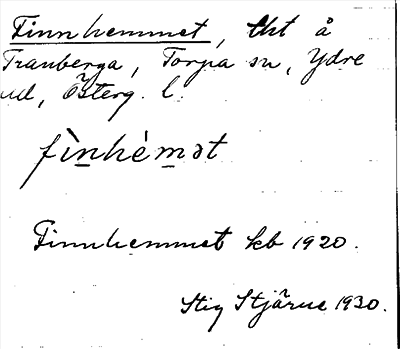 Finnhemmet, tht å
Tranberga, Torpa sn, Ydre
hd, Österg. l.
fìn̲hèm̲ət
Finnhemmet kb 1920.
Stig Stjärne 1930.